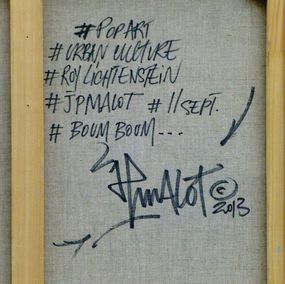 # POP ART
# URBAN CULTURE
# ROY LICHTENSTEIN
# JPMALOT # 11 SEPT.
# BOUM BOUM ...
JPMALOT ©
2013